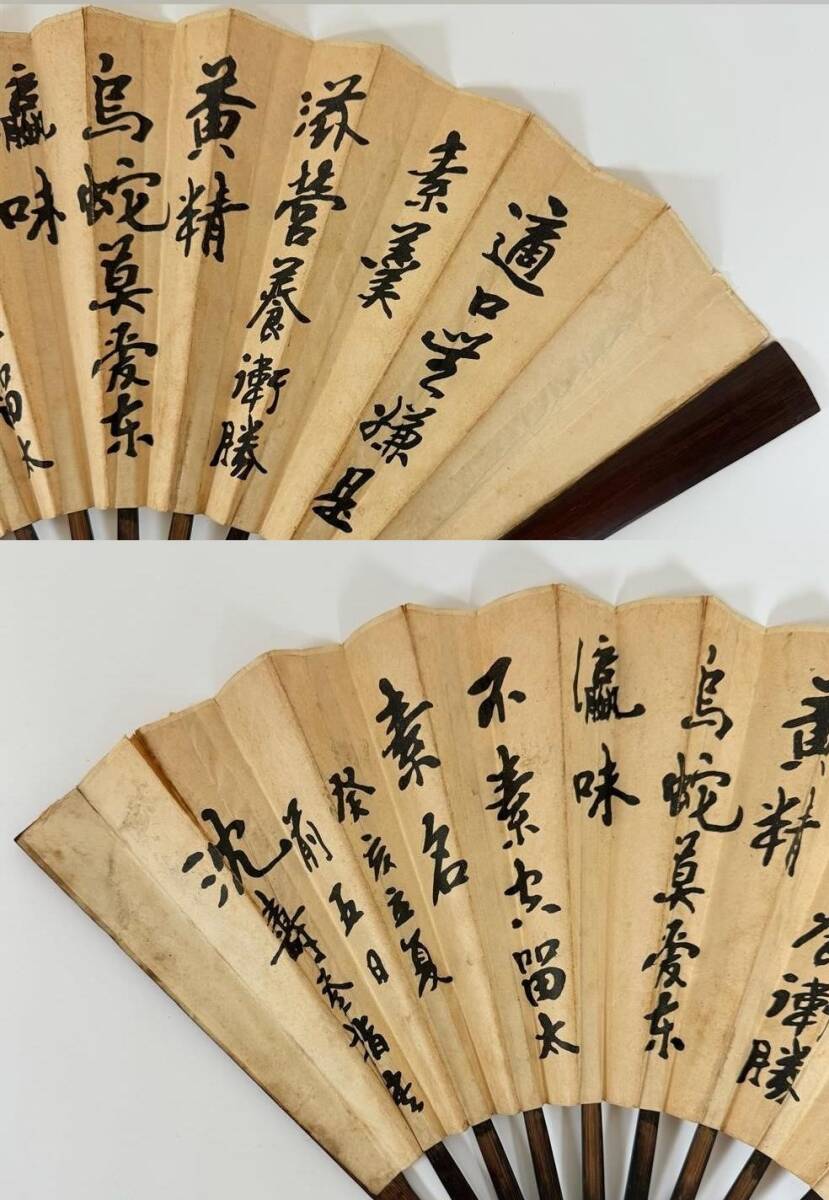 適口無嫌是
素羹
滋營養衛勝
黄精
烏蛇莫爱东
瀛味
留太
衛勝
黄精
烏蛇莫爱东
瀛味
不素空留太
素名
癸亥立夏
前五日
沈壽